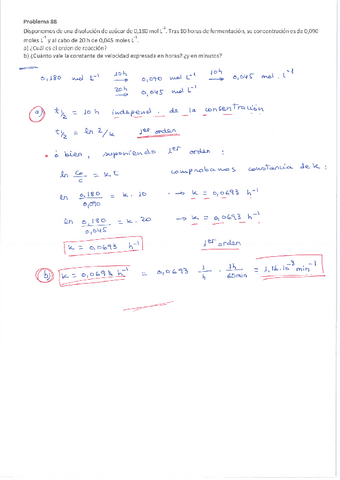 Problema 38
Disponemos de una disolución de azúcar de 0,180 mol L⁻¹. Tras 10 horas de fermentación, su concentración es de 0,090
moles L⁻¹ y al cabo de 20 h de 0,045 moles L⁻¹.
a) ¿Cuál es el orden de reacción?
b) ¿Cuánto vale la constante de velocidad expresada en horas? ¿y en minutos?
0,180 mol L⁻¹ 10h → 0,090 mol L⁻¹ 10h → 0,045 mol. L⁻¹
20h → 0,045 mol L⁻¹
a) t1/2 = 10 h independ. de la concentración
t1/2 = ln 2/k 1er orden
• ó bien, suponiendo 1er orden :
ln Co/C = k t comprobamos constancia de k :
ln 0,180/0,090 = k. 10 → k = 0,0693 h⁻¹
ln 0,180/0,045 = k. 20 → k = 0,0693 h⁻¹
k = 0,0693 h⁻¹ 1er orden
b) k = 0,0693 h⁻¹ = 0,0693 1/h · 1h/60min = 1,16.10⁻³ min⁻¹